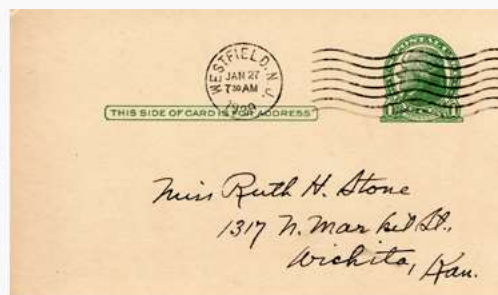 WESTFIELD, N.J.
JAN 27
7 30 AM
POSTAL
1
THIS SIDE OF CARD IS FOR ADDRESS
Miss Ruth H. Stone
1317 N. Market St.,
Wichita, Kan.